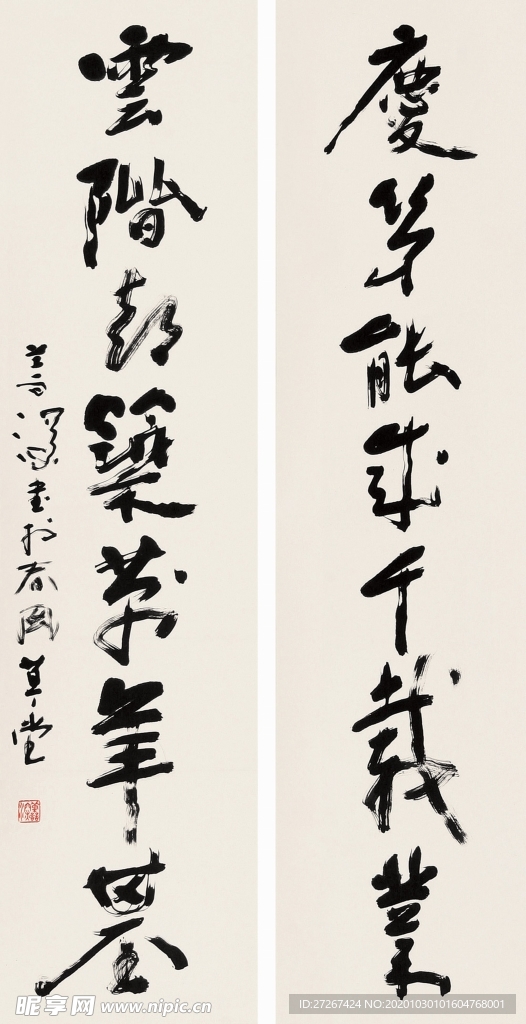 慶 能成千載業
雲階 築萬年基
善深書於春岡草堂
昵享网 www.nipic.cn
ID:27267424 NO:20201030101604768001